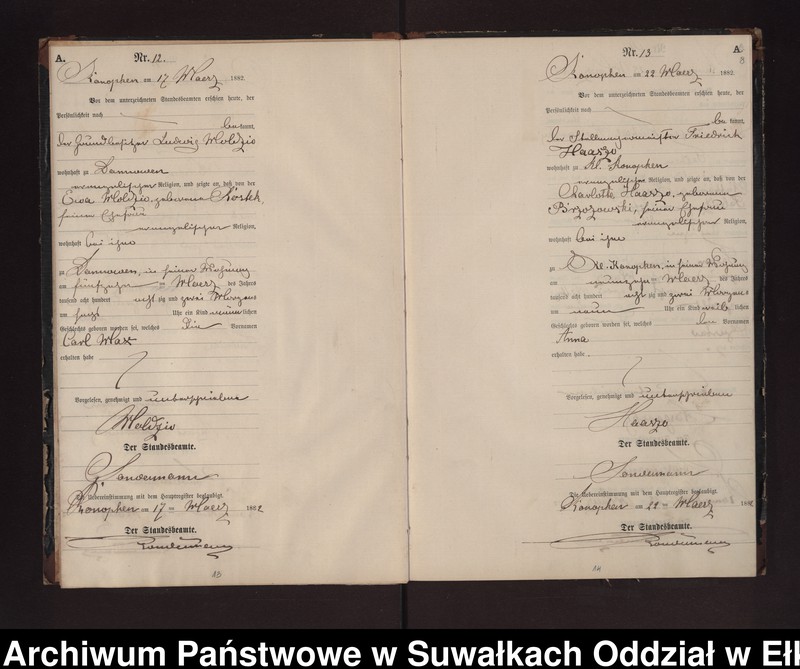 A.
Nr. 12.
Konopken am 17 Maerz 1882
Vor dem unterzeichneten Standesbeamten erschien heute, der
Persönlichkeit nach
be kannt,
der Grundbesitzer Ludwig Moldzio
wohnhaft zu Dannowen
evangelischer Religion, und zeigte an, daß von der
Ewa Moldzio, geborene
seiner Ehefrau
evangelischer Religion,
wohnhaft bei ihm
zu Dannowen, in seiner Wohnung
am fünfzehn ten Maerz des Jahres
tausend acht hundert acht zig und zwei Morgens
um sechs Uhr ein Kind männlichen
Geschlechts geboren worden sei, welches die Vornamen
Carl Max
erhalten habe
Vorgelesen, genehmigt und unterschrieben
Moldzio
Der Standesbeamte.
Sondermann
Die Uebereinstimmung mit dem Hauptregister beglaubigt.
Konopken am 17 ten Maerz 1882
Der Standesbeamte.
Sondermann
13
Nr. 13
A
Konopken am 22 Maerz 1882
Vor dem unterzeichneten Standesbeamten erschien heute, der
Persönlichkeit nach
be kannt,
der Friedrich
Haarzo
wohnhaft zu Kl. Konopken
evangelischer Religion, und zeigte an, daß von der
Charlotte Haarzo, geborene
Brzozowski, seiner Ehefrau
evangelischer Religion,
wohnhaft bei ihm
zu Kl. Konopken, in seiner Wohnung
am neunzehn ten Maerz des Jahres
tausend acht hundert acht zig und zwei Morgens
um neun Uhr ein Kind weiblichen
Geschlechts geboren worden sei, welches den Vornamen
Anna
erhalten habe.
Vorgelesen, genehmigt und unterschrieben
Haarzo
Der Standesbeamte.
Sondermann
Die Uebereinstimmung mit dem Hauptregister beglaubigt.
Konopken am 22 ten Maerz 1882
Der Standesbeamte.
Sondermann
14
Archiwum Państwowe w Suwałkach Oddział w Eł